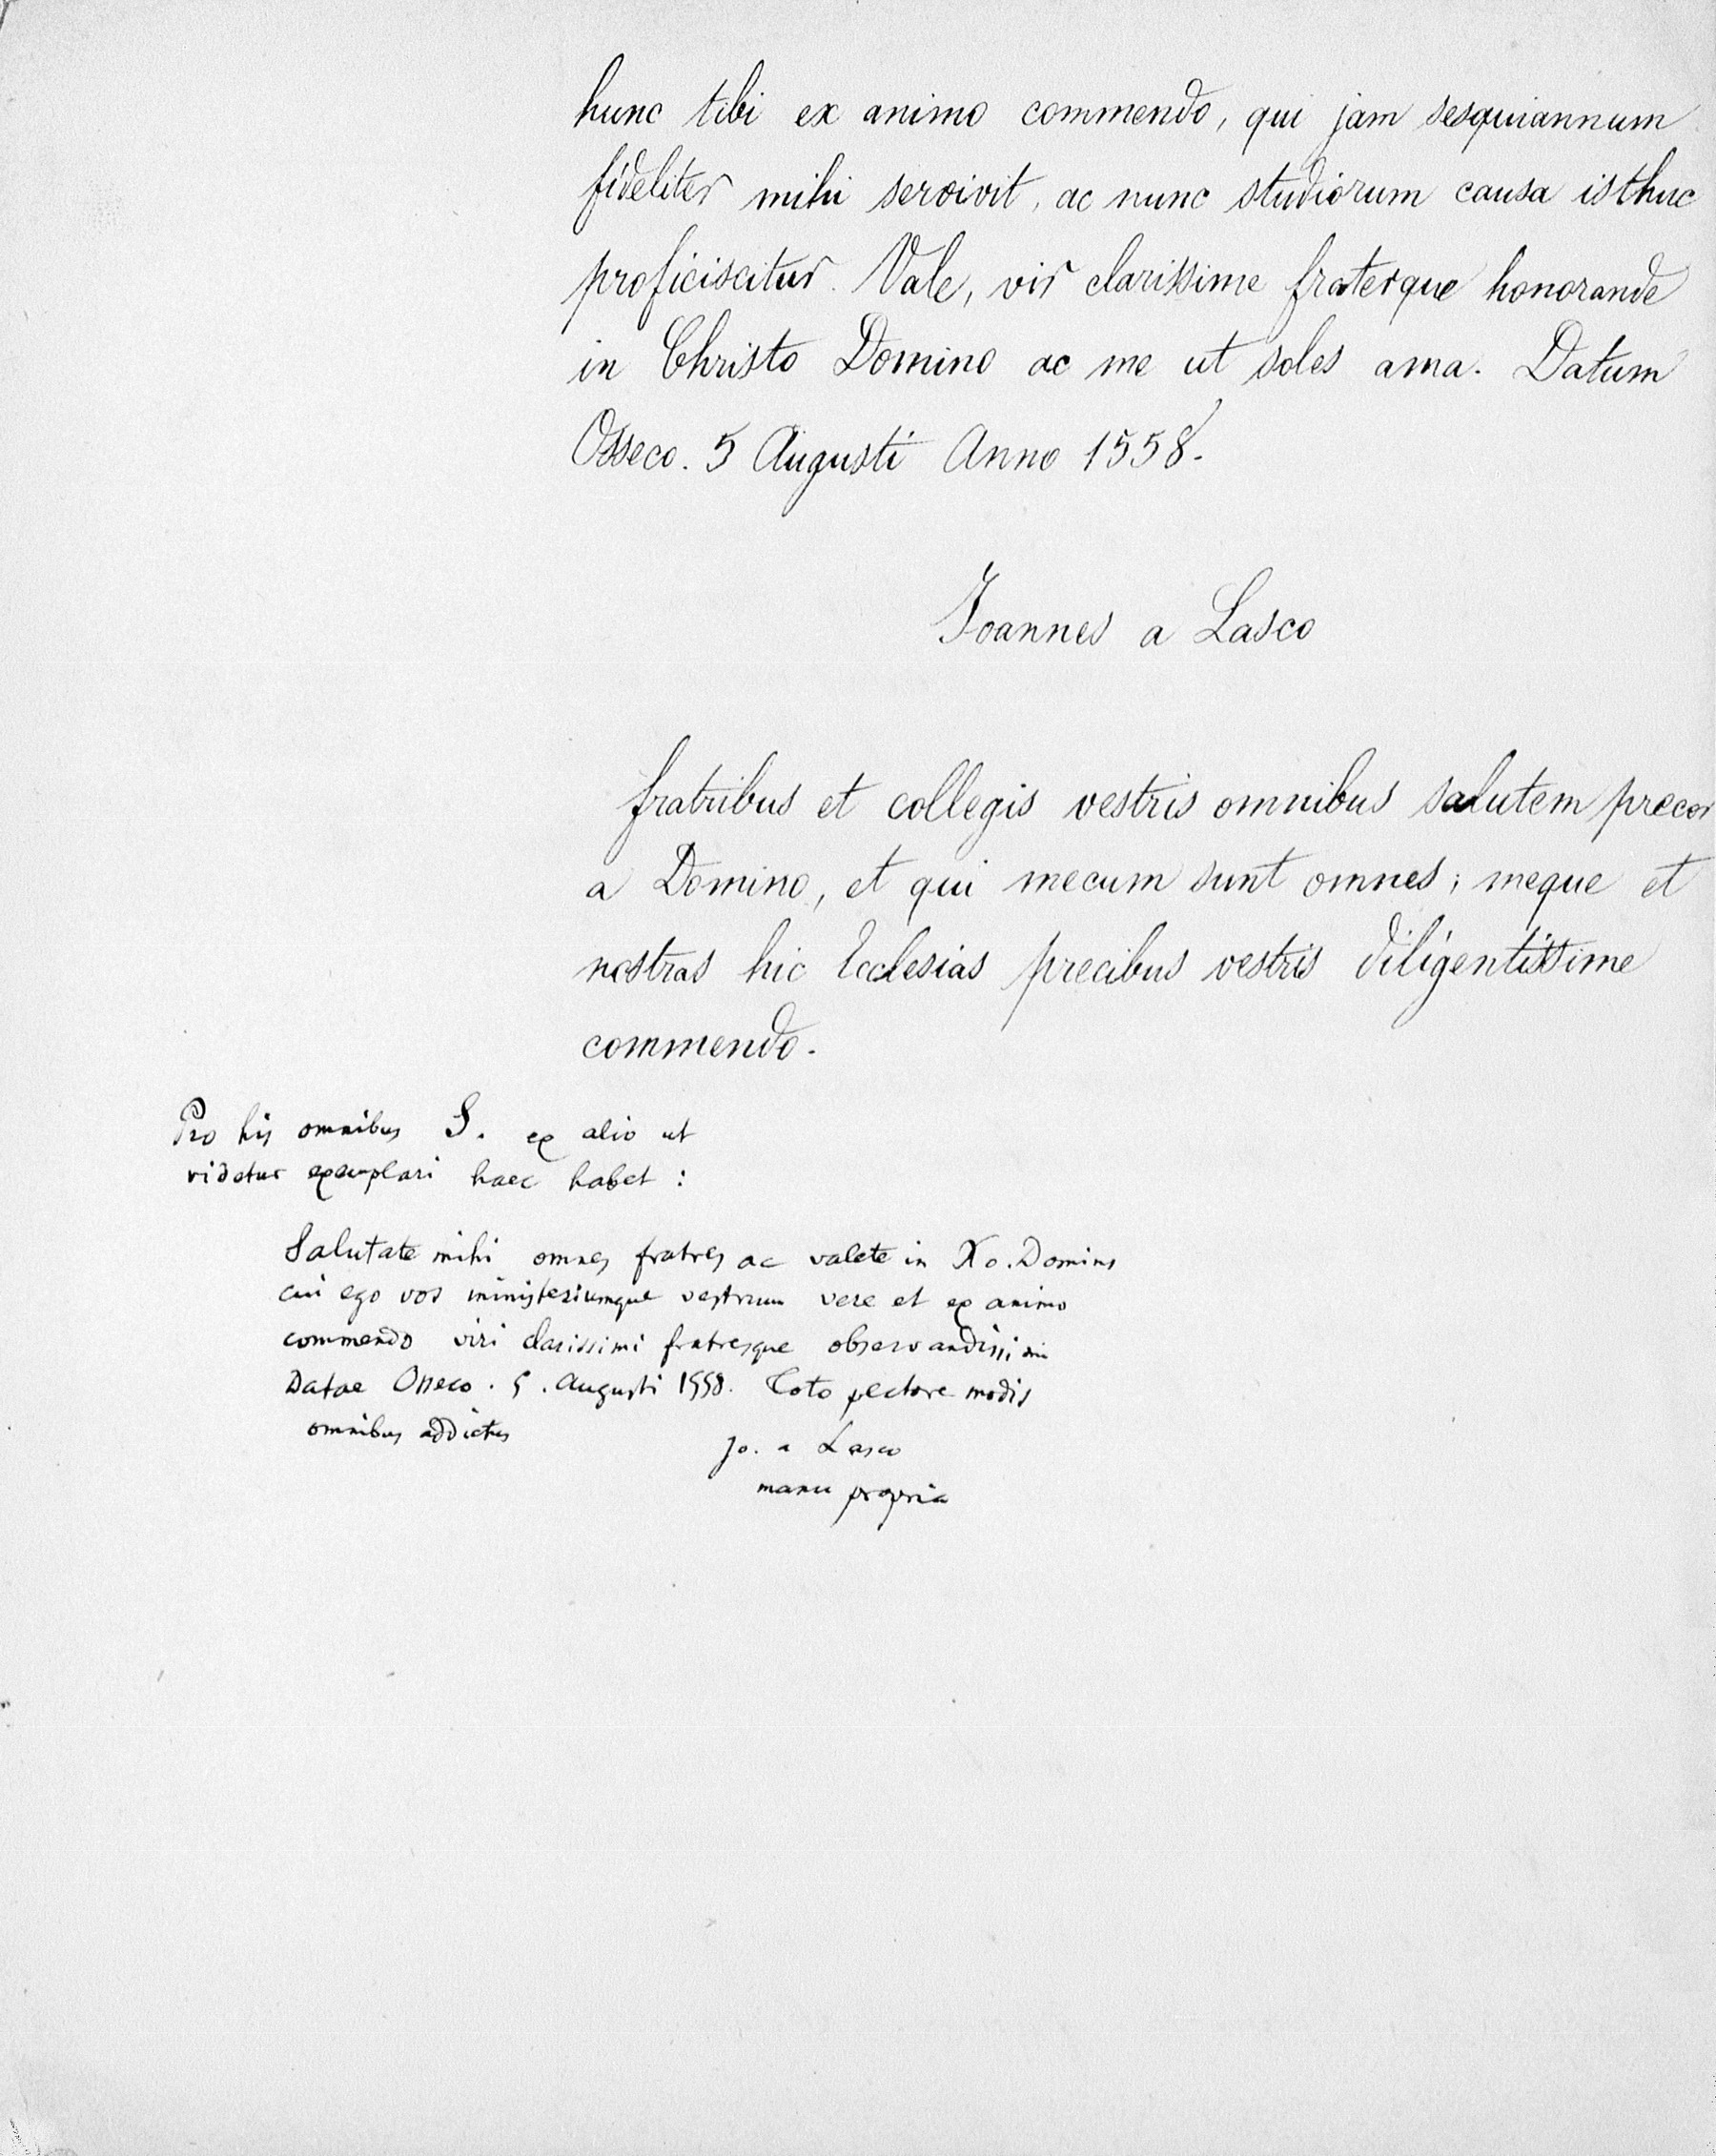 hunc tibi ex animo commendo, qui jam sesquiannum
fideliter mihi servivit, ac nunc studiorum causa isthuc
proficiscitur. Vale, vir clarissime fraterque honorande
in Christo Domino ac me ut soles ama. Datum
Osseco. 5 Augusti Anno 1558.
Joannes a Lasco
fratribus et collegis vestris omnibus salutem precor
a Domino, et qui mecum sunt omnes; meque et
nostras hic Ecclesias precibus vestris diligentissime
commendo.
Pro his omnibus S. ex alio ut
videtur exemplari haec habet:
Salutate mihi omnes fratres ac valete in Xo. Domino
cui ego vos ministeriumque vestrum vere et ex animo
commendo viri clarissimi fratresque observandissimi
Datae Osseco. 5. Augusti 1558. Toto pectore modis
omnibus addictus
Jo. a Lasco
manu propria